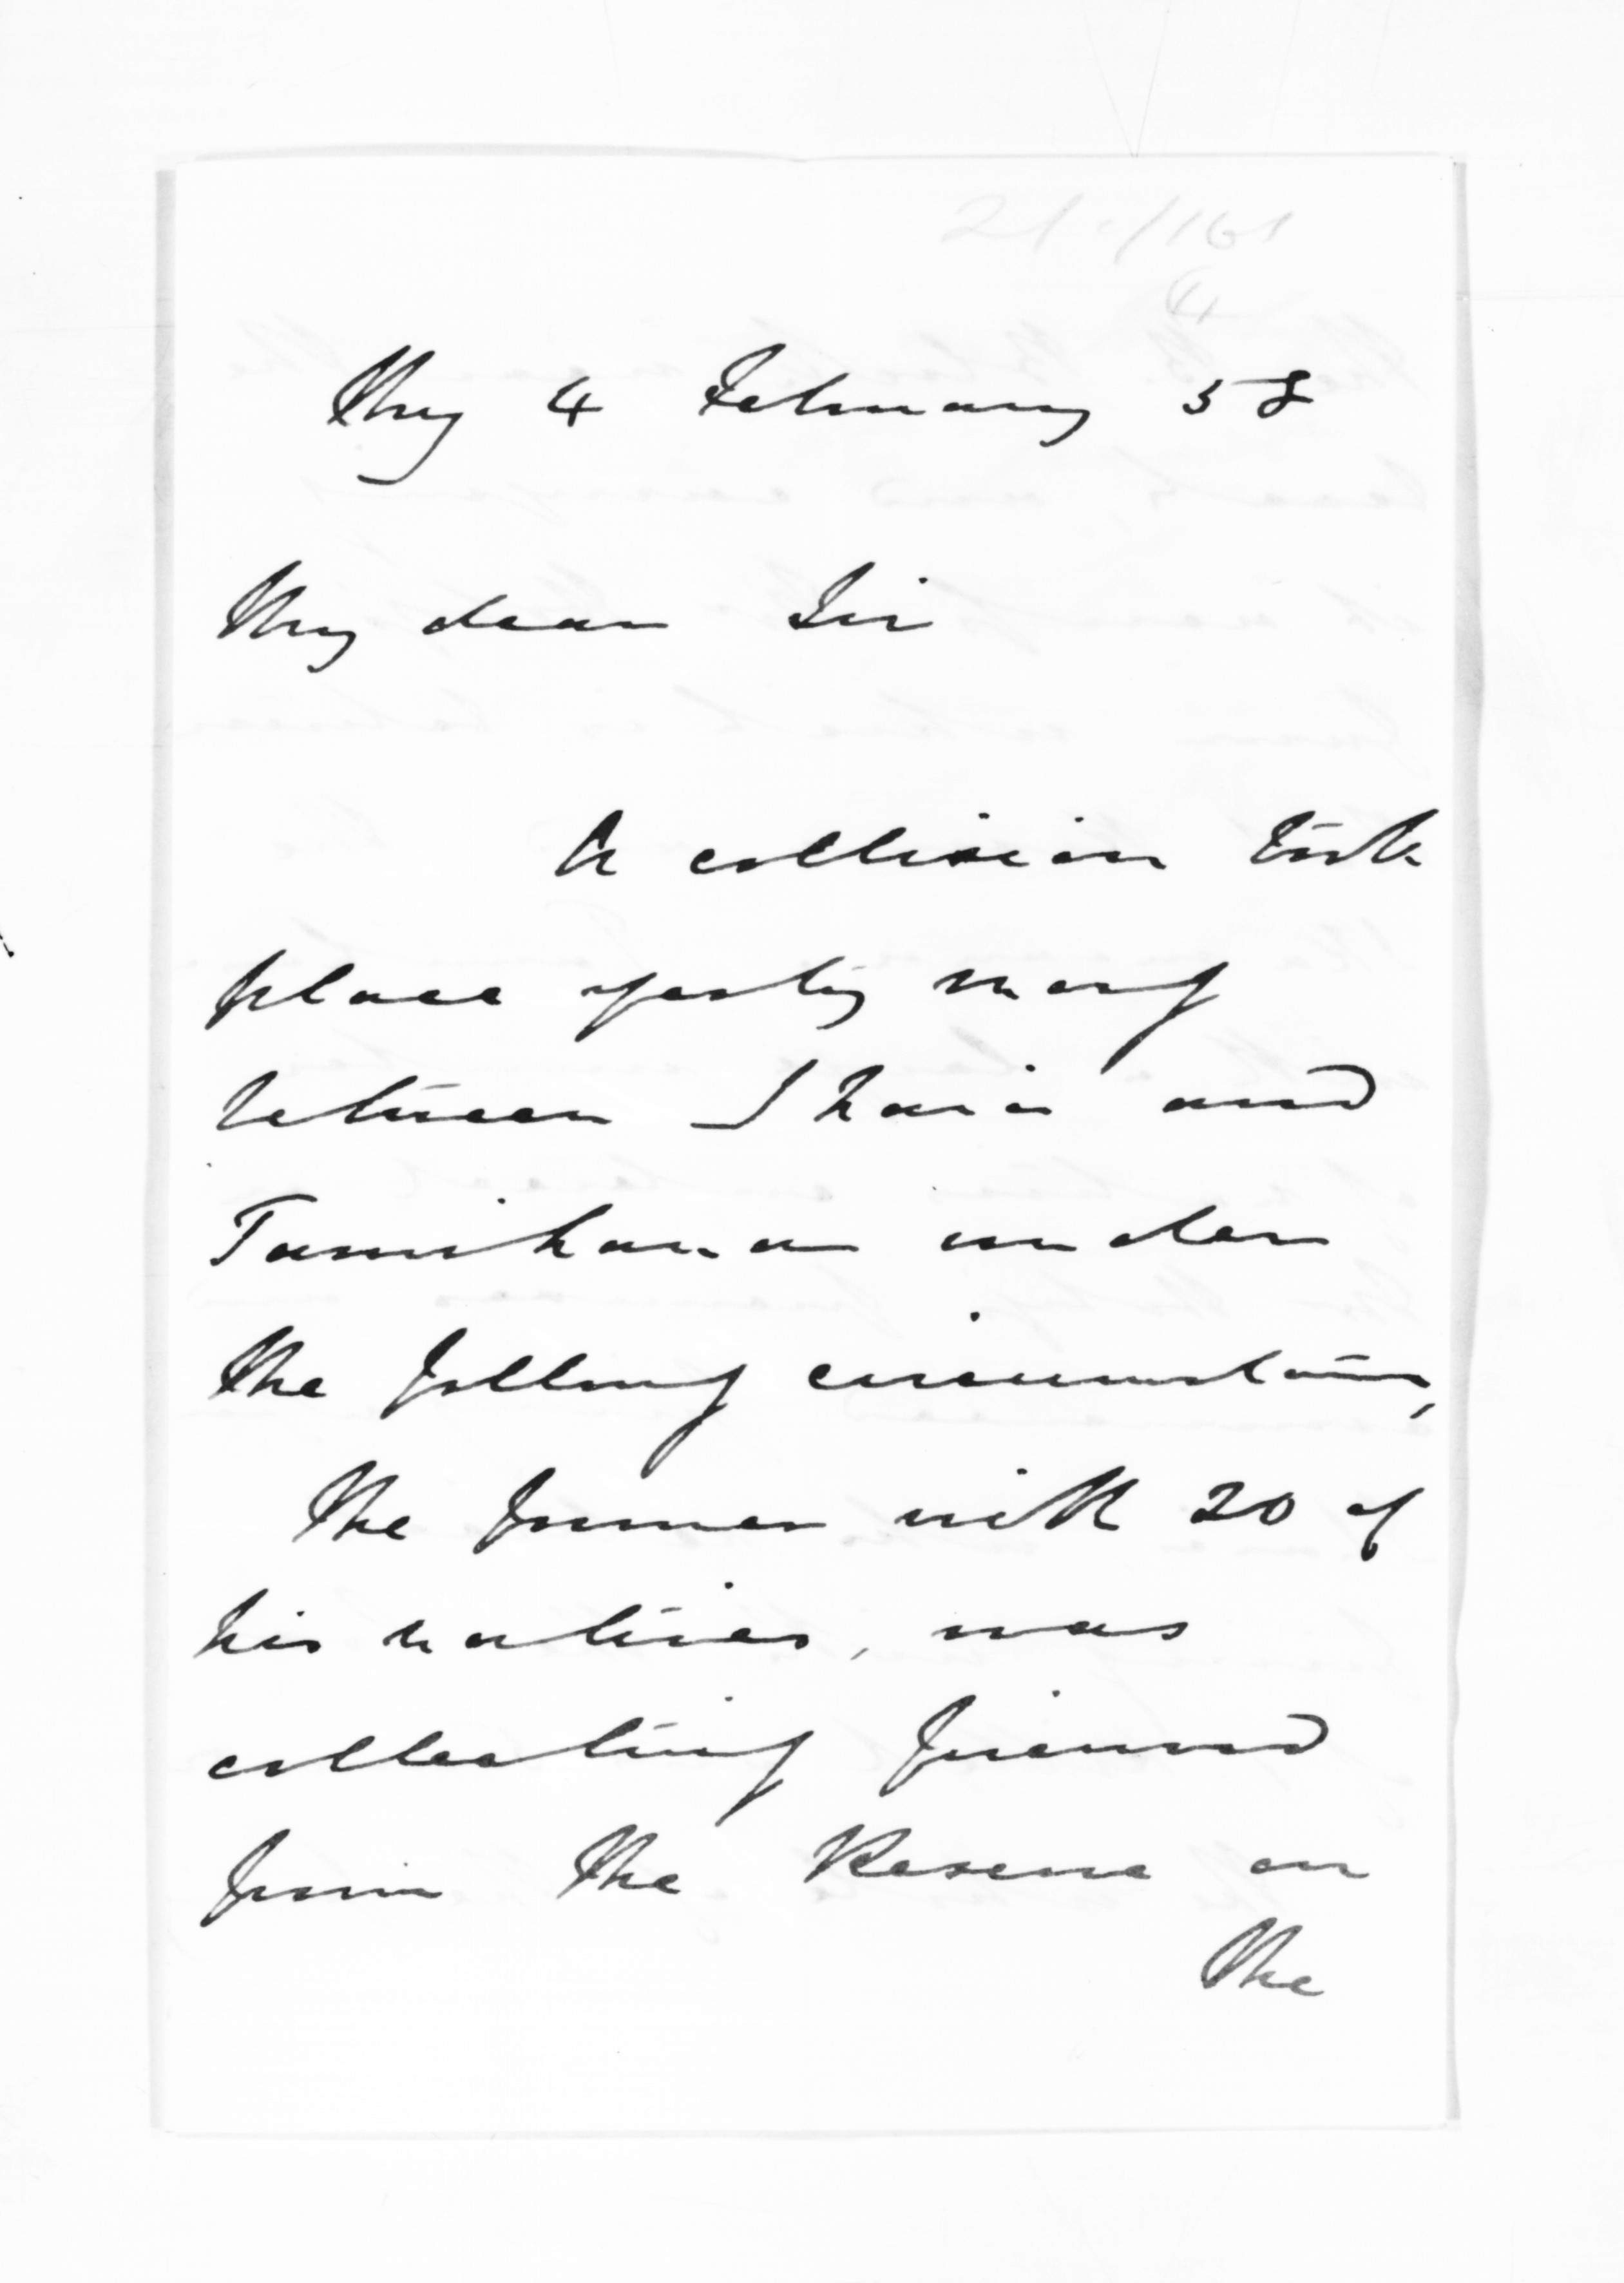 Thuy 4 February 58
My dear Sir
A collision took
place yesty morg
between Ihaia and
Tamihana under
the follow'g circumstances,
The former with 20 of
his natives, was
collecting firewood
from the Reserve on
the